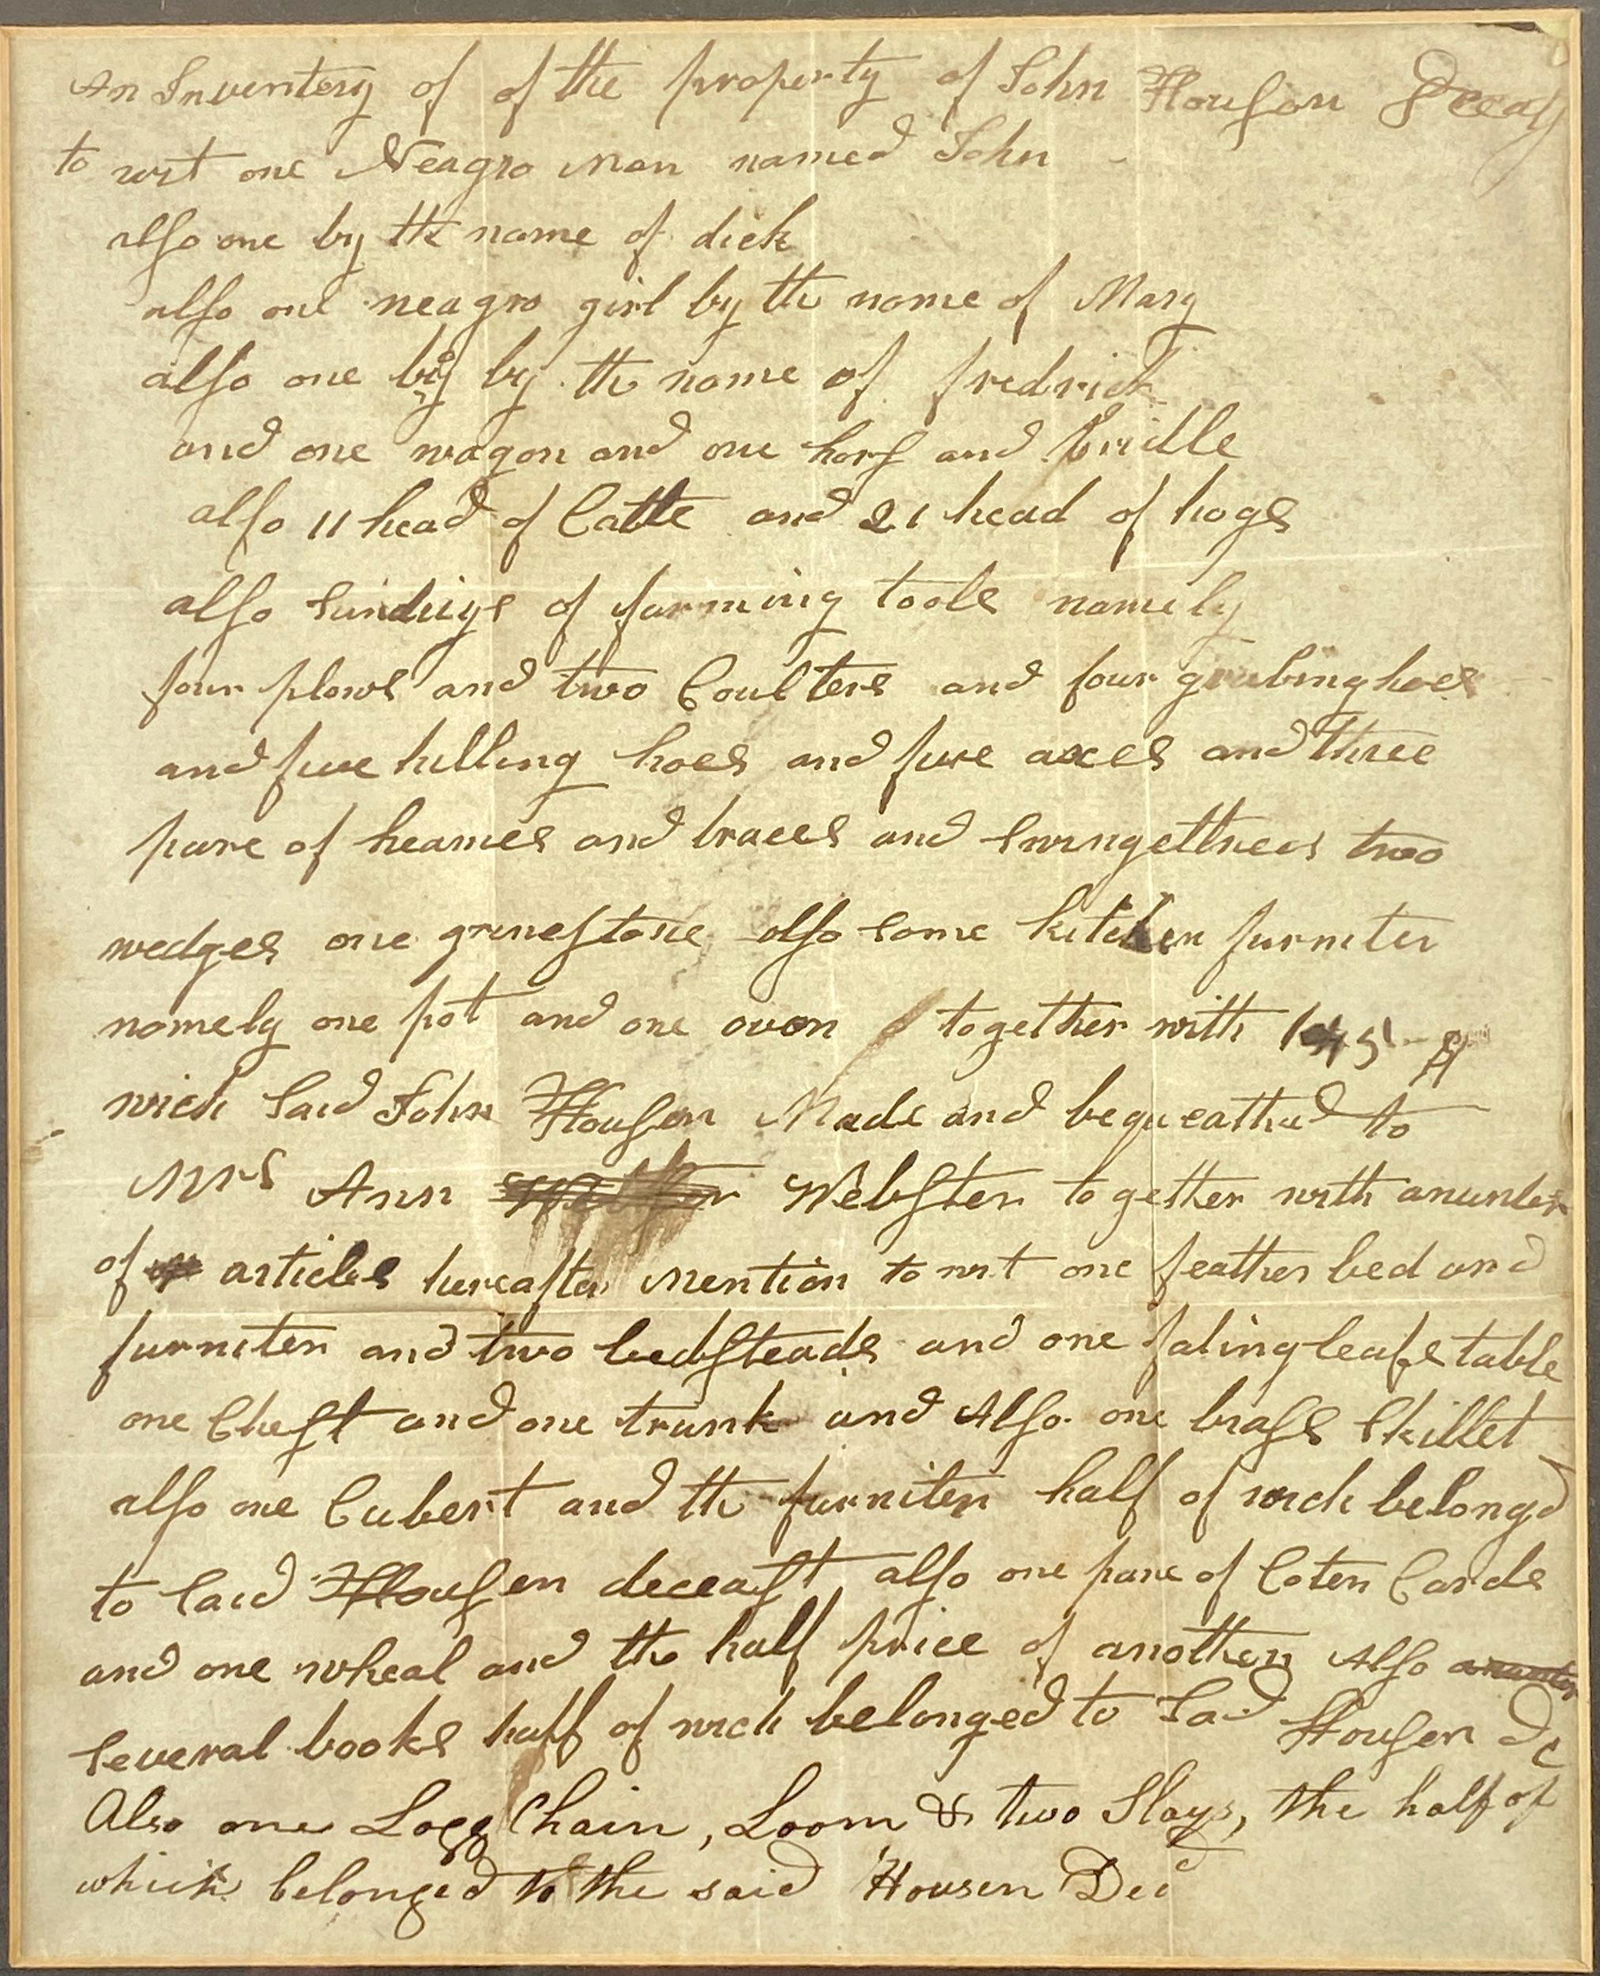 An Inventory of of the property of John Housan Deceas
to wit one Neagro Man named John
also one by the name of dick
also one neagro girl by the name of Mary
also one boy by the name of fredrick
and one wagon and one hors and bridle
also 11 head of Catte and 21 head of hogs
also sundrys of farming tools namely
four plows and two Coulters and four grubing hoes
and five hilling hoes and five axes and three
pare of heames and traces and swingettrees two
wedges one grinestone also some kitchen furniter
namely one pot and one ovon together with
wich said John Housen Made and bequeathed to
Mrs Ann Webster together with anumber
of articles hereafter mention to wit one feather bed and
furniter and two bedsteads and one falingleafs table
one Chest and one trunk and Also one brass skillet
also one Cubert and the furniter half of wich belongd
to said Housen deceast also one pare of Coten Cards
and one wheal and the half price of another Also
several books half of wich belonged to Said Housen Dc
Also one Logg Chain, Loom & two Slays, the half of
which belonged to the said Housen Decd